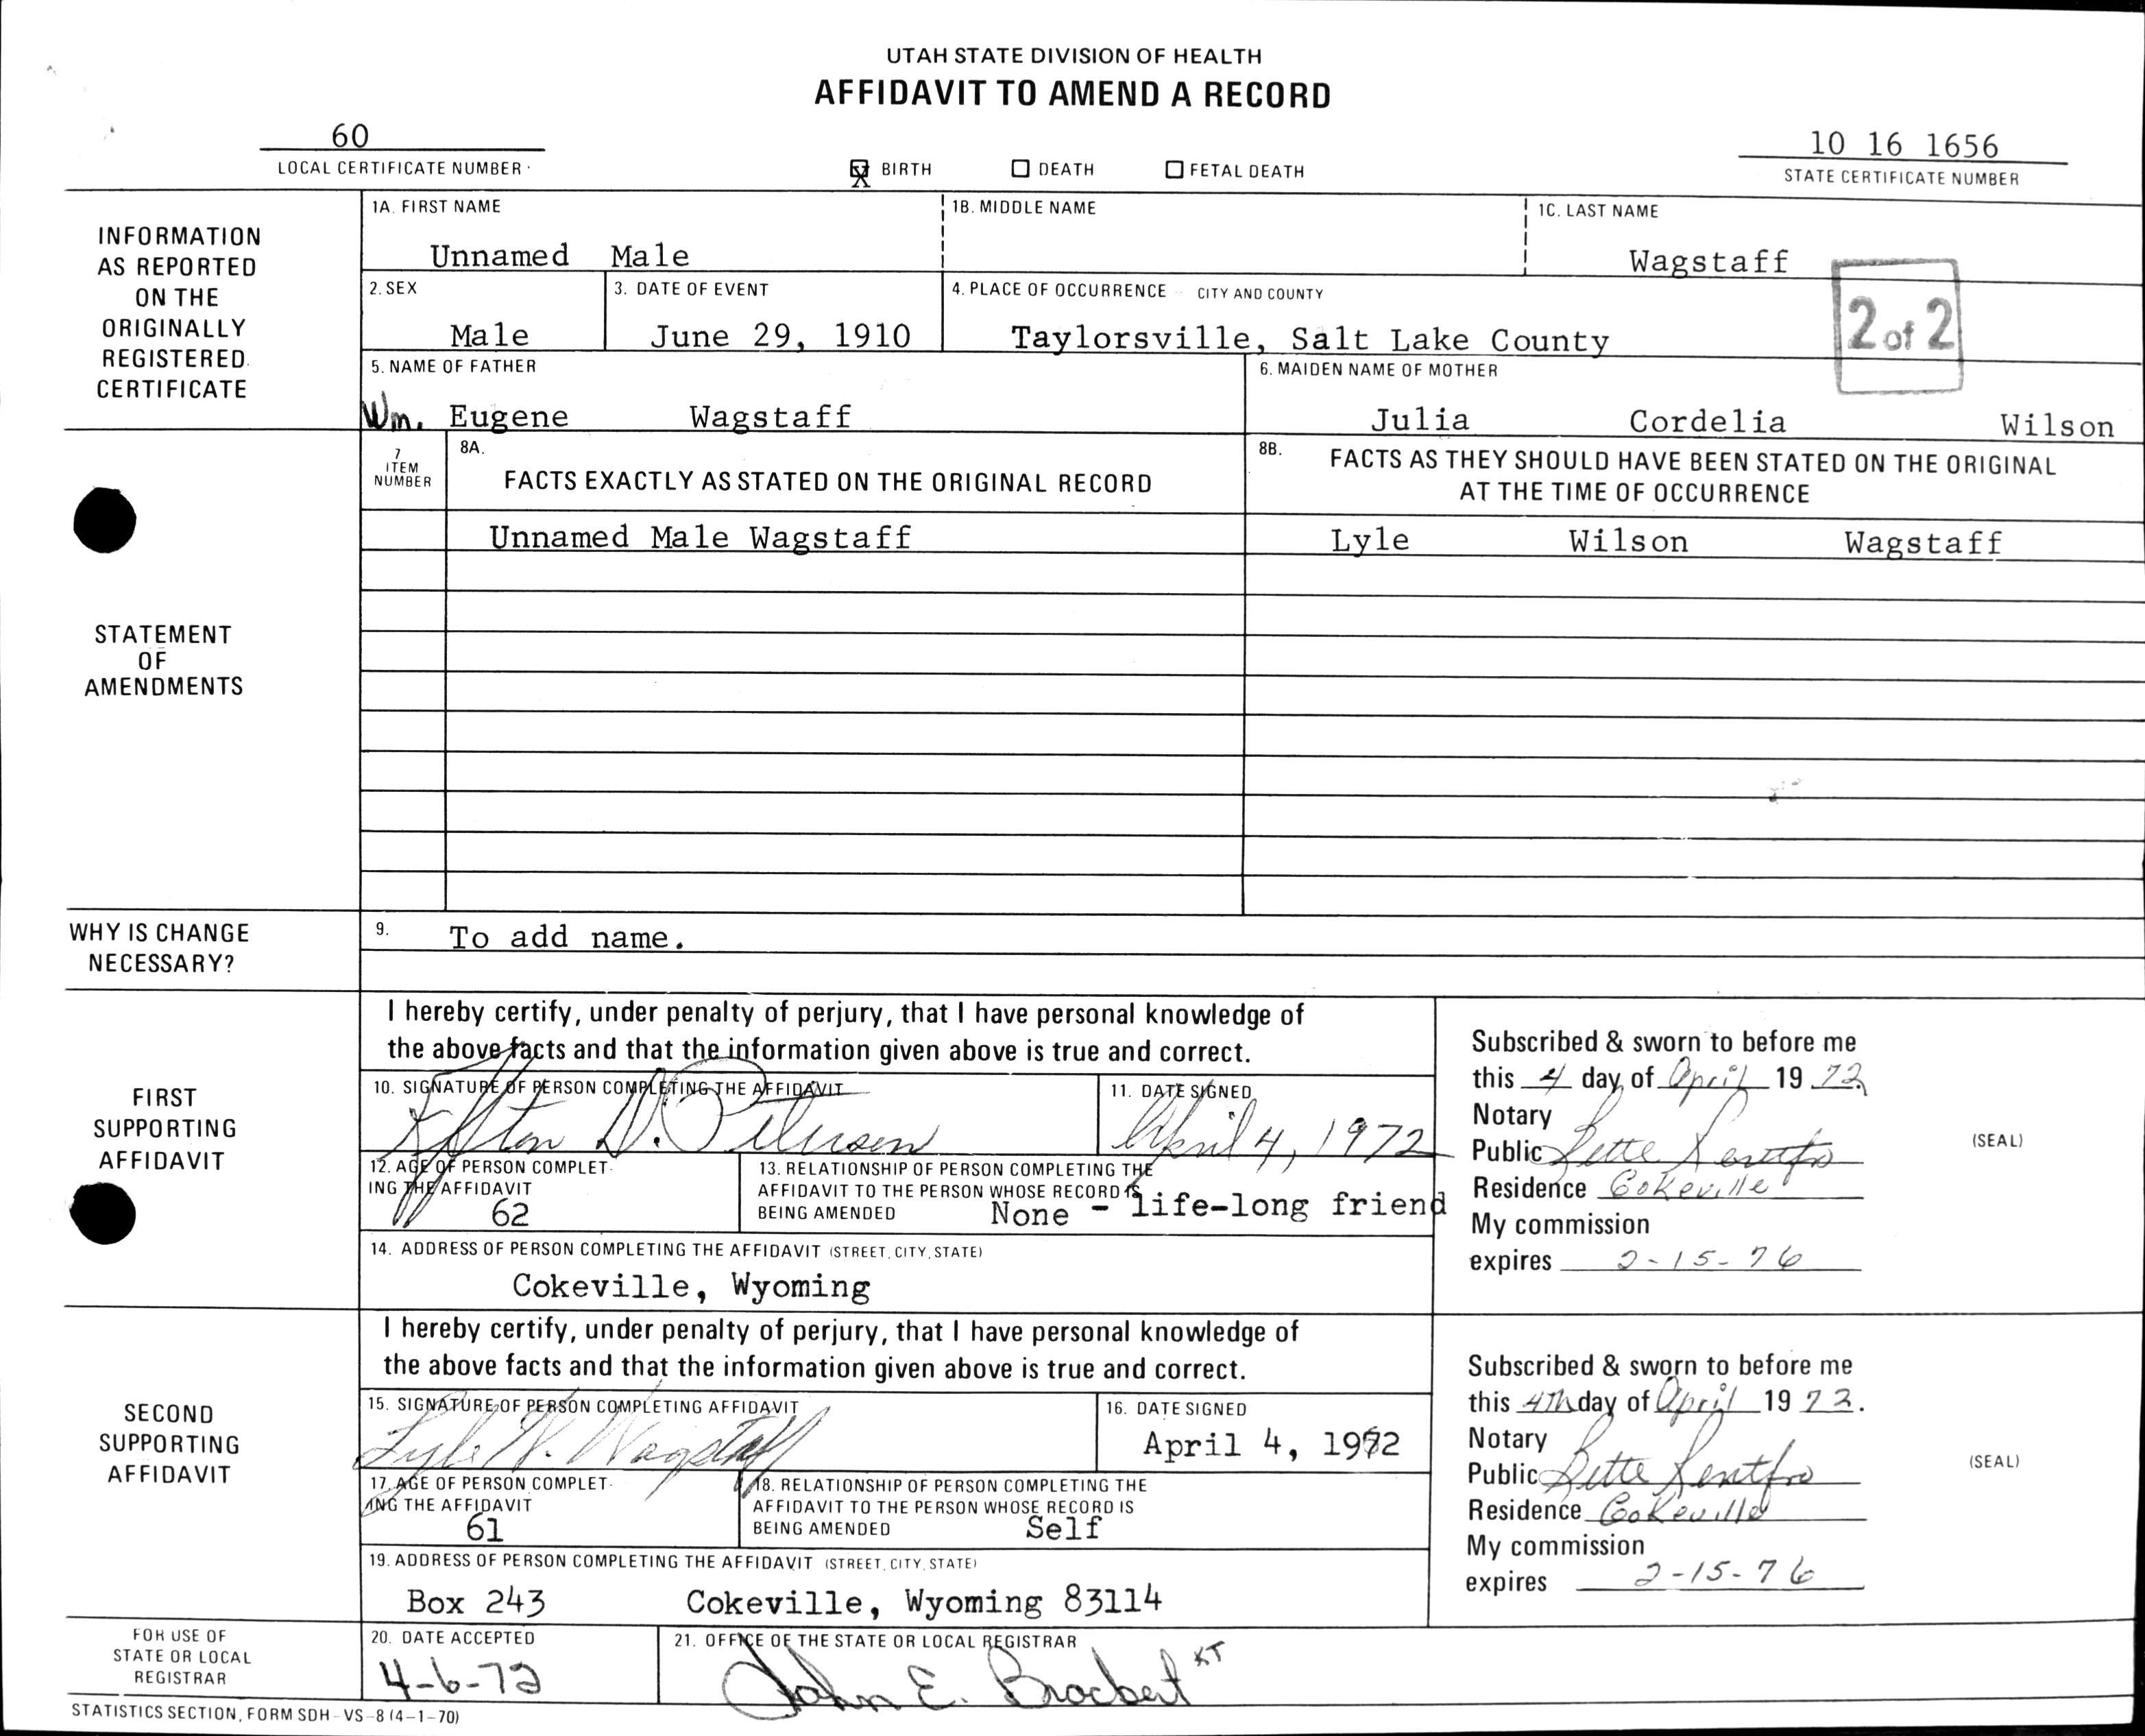 UTAH STATE DIVISION OF HEALTH
AFFIDAVIT TO AMEND A RECORD
60
LOCAL CERTIFICATE NUMBER
X BIRTH DEATH FETAL DEATH
10 16 1656
STATE CERTIFICATE NUMBER
INFORMATION
AS REPORTED
ON THE
ORIGINALLY
REGISTERED
CERTIFICATE
1A. FIRST NAME 1B. MIDDLE NAME 1C. LAST NAME
Unnamed Male Wagstaff
2. SEX 3. DATE OF EVENT 4. PLACE OF OCCURRENCE CITY AND COUNTY
Male June 29, 1910 Taylorsville, Salt Lake County
2 of 2
5. NAME OF FATHER 6. MAIDEN NAME OF MOTHER
Wm. Eugene Wagstaff Julia Cordelia Wilson
STATEMENT
OF
AMENDMENTS
7
ITEM
NUMBER
8A.
FACTS EXACTLY AS STATED ON THE ORIGINAL RECORD
8B. FACTS AS THEY SHOULD HAVE BEEN STATED ON THE ORIGINAL
AT THE TIME OF OCCURRENCE
Unnamed Male Wagstaff Lyle Wilson Wagstaff
WHY IS CHANGE
NECESSARY?
9. To add name.
FIRST
SUPPORTING
AFFIDAVIT
I hereby certify, under penalty of perjury, that I have personal knowledge of
the above facts and that the information given above is true and correct.
10. SIGNATURE OF PERSON COMPLETING THE AFFIDAVIT 11. DATE SIGNED
D. Petersen April 4, 1972
12. AGE OF PERSON COMPLET-
ING THE AFFIDAVIT
62
13. RELATIONSHIP OF PERSON COMPLETING THE
AFFIDAVIT TO THE PERSON WHOSE RECORD IS
BEING AMENDED None - life-long friend
14. ADDRESS OF PERSON COMPLETING THE AFFIDAVIT (STREET, CITY, STATE)
Cokeville, Wyoming
Subscribed & sworn to before me
this 4 day of April 19 72
Notary
Public Bette Rentfro
Residence Cokeville
My commission
expires 2-15-76
(SEAL)
SECOND
SUPPORTING
AFFIDAVIT
I hereby certify, under penalty of perjury, that I have personal knowledge of
the above facts and that the information given above is true and correct.
15. SIGNATURE OF PERSON COMPLETING AFFIDAVIT 16. DATE SIGNED
Lyle W. Wagstaff April 4, 1972
17. AGE OF PERSON COMPLET-
ING THE AFFIDAVIT
61
18. RELATIONSHIP OF PERSON COMPLETING THE
AFFIDAVIT TO THE PERSON WHOSE RECORD IS
BEING AMENDED Self
19. ADDRESS OF PERSON COMPLETING THE AFFIDAVIT (STREET, CITY, STATE)
Box 243 Cokeville, Wyoming 83114
Subscribed & sworn to before me
this 4th day of April 19 72.
Notary
Public Bette Rentfro
Residence Cokeville
My commission
expires 2-15-76
(SEAL)
FOR USE OF
STATE OR LOCAL
REGISTRAR
20. DATE ACCEPTED 21. OFFICE OF THE STATE OR LOCAL REGISTRAR
4-6-72 John E. Brockert KT
STATISTICS SECTION, FORM SDH-VS-8 (4-1-70)